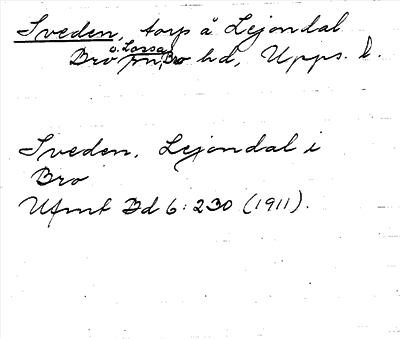 Sveden, torp å Lejondal
Bro o. Lossa sn, Bro hd, Upps. l.
Sveden, Lejondal i
Bro
Ufmt Bd 6:230 (1911).